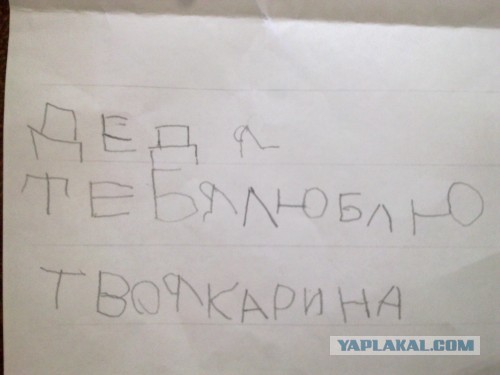 ДЕД Я
ТЕБЯЛЮБЛЮ
ТВОЯКАРИНА
YAPLAKAL.COM